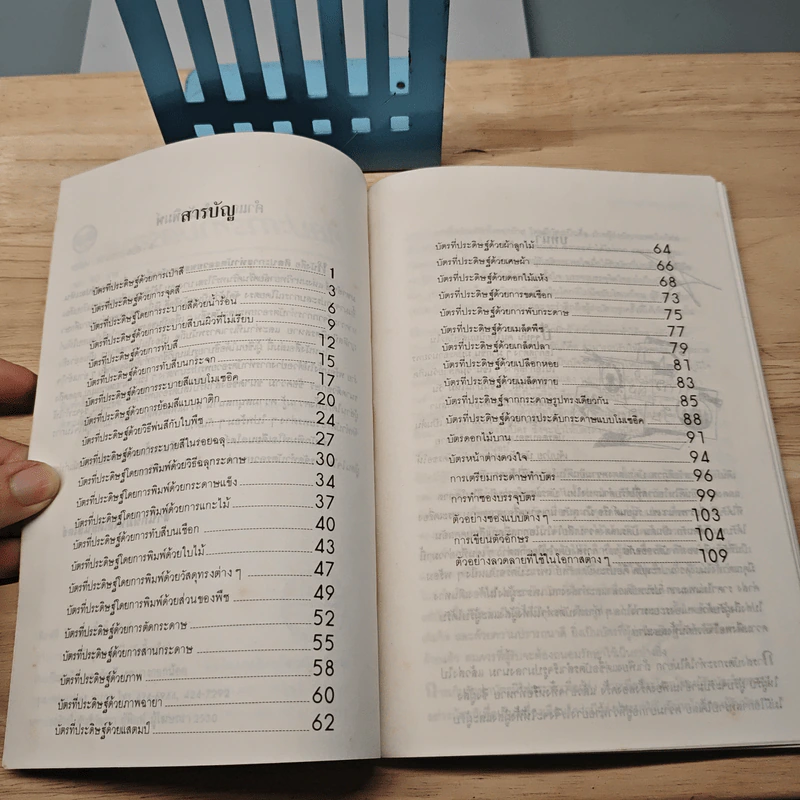 สารบัญ
บัตรที่ประดิษฐ์ด้วยการเป่าสี 1
บัตรที่ประดิษฐ์ด้วยการจุดสี 3
บัตรที่ประดิษฐ์โดยการระบายสีด้วยน้ำร้อน 6
บัตรที่ประดิษฐ์ด้วยการระบายสีบนผิวที่ไม่เรียบ 9
บัตรที่ประดิษฐ์ด้วยการทับสี 12
บัตรที่ประดิษฐ์ด้วยการทับสีบนกระจก 15
บัตรที่ประดิษฐ์ด้วยการระบายสีแบบโมเซอิค 17
บัตรที่ประดิษฐ์ด้วยการย้อมสีแบบมาติก 20
บัตรที่ประดิษฐ์ด้วยวิธีพ่นสีกับใบพืช 24
บัตรที่ประดิษฐ์ด้วยการระบายสีในรอยฉลุ 27
บัตรที่ประดิษฐ์โดยการพิมพ์ด้วยวิธีฉลุกระดาษ 30
บัตรที่ประดิษฐ์โดยการพิมพ์ด้วยกระดาษแข็ง 34
บัตรที่ประดิษฐ์โดยการพิมพ์ด้วยการแกะไม้ 37
บัตรที่ประดิษฐ์ด้วยการทับสีบนเชือก 40
บัตรที่ประดิษฐ์โดยการพิมพ์ด้วยใบไม้ 43
บัตรที่ประดิษฐ์โดยการพิมพ์ด้วยวัสดุทรงต่าง ๆ 47
บัตรที่ประดิษฐ์โดยการพิมพ์ด้วยส่วนของพืช 49
บัตรที่ประดิษฐ์ด้วยการตัดกระดาษ 52
บัตรที่ประดิษฐ์ด้วยการสานกระดาษ 55
บัตรที่ประดิษฐ์ด้วยภาพ 58
บัตรที่ประดิษฐ์ด้วยภาพฉายา 60
บัตรที่ประดิษฐ์ด้วยแสตมป์ 62
บัตรที่ประดิษฐ์ด้วยผ้าลูกไม้ 64
บัตรที่ประดิษฐ์ด้วยเศษผ้า 66
บัตรที่ประดิษฐ์ด้วยดอกไม้แห้ง 68
บัตรที่ประดิษฐ์ด้วยการขดเชือก 73
บัตรที่ประดิษฐ์ด้วยการพับกระดาษ 75
บัตรที่ประดิษฐ์ด้วยเมล็ดพืช 77
บัตรที่ประดิษฐ์ด้วยเกล็ดปลา 79
บัตรที่ประดิษฐ์ด้วยเปลือกหอย 81
บัตรที่ประดิษฐ์ด้วยเมล็ดทราย 83
บัตรที่ประดิษฐ์จากกระดาษรูปทรงเดียวกัน 85
บัตรที่ประดิษฐ์ด้วยการประดับกระดาษแบบโมเซอิค 88
บัตรดอกไม้บาน 91
บัตรหน้าต่างดวงใจ 94
การเตรียมกระดาษทำบัตร 96
การทำซองบรรจุบัตร 99
ตัวอย่างของแบบต่าง ๆ 103
การเขียนตัวอักษร 104
ตัวอย่างลวดลายที่ใช้ในโอกาสต่าง ๆ 109